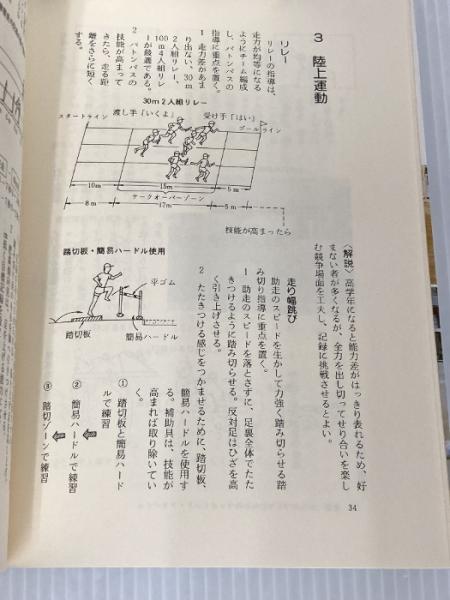 3 陸上運動
〈解説〉高学年になると能力差がはっきり表れるため、好
まない者が多くなるが、全力を出し切ってせり合いを楽し
む競争場面を工夫し、記録に挑戦させるとよい。
リレー
リレーの指導は、
走力が均等になる
ようにチーム編成
し、バトンパスの
指導に重点を置く。
1 走力差があま
り出ない、30m
2人組リレー、
100m4人組リレ
ーが最適である。
2 バトンパスの
技能が高まって
きたら、走る距
離をさらに短く
する。
30m2人組リレー
渡し手「いくよ」
受け手「はい」
スタートライン
ゴールライン
10m
15m
5m
テークオーバーゾーン
8m
17m
5m
技能が高まったら
走り幅跳び
助走のスピードを生かして力強く踏み切らせる踏
み切り指導に重点を置く。
1 助走のスピードを落とさずに、足裏全体でたた
きつけるように踏み切らせる。反対足はひざを高
く引き上げさせる。
2 たたきつける感じをつかませるために、踏切板、
簡易ハードルを使用す
る。補助具は、技能が
高まれば取り除いてい
く。
① 踏切板と簡易ハード
ルで練習
② 簡易ハードルで練習
③ 踏切ゾーンで練習
踏切板・簡易ハードル使用
平ゴム
踏切板
簡易ハードル
34